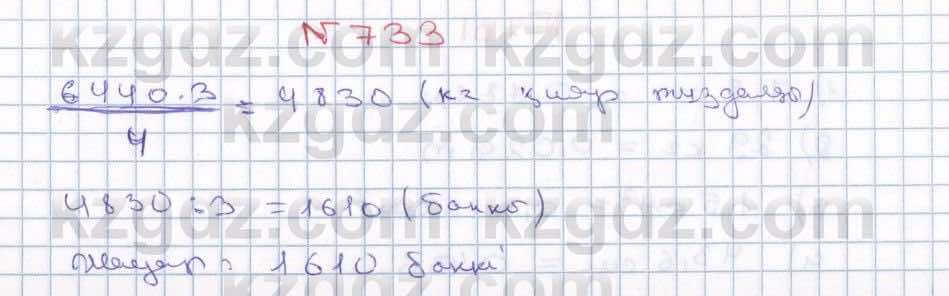 N 733
6440 · 3 / 4 = 4830 (кг қияр тұздалды)
4830 : 3 = 1610 (банкі)
Жауап: 1610 банкі
kzgdz.com kzgdz.com
kzgdz.com
kzgdz.com kzgdz.com
kzgdz.com